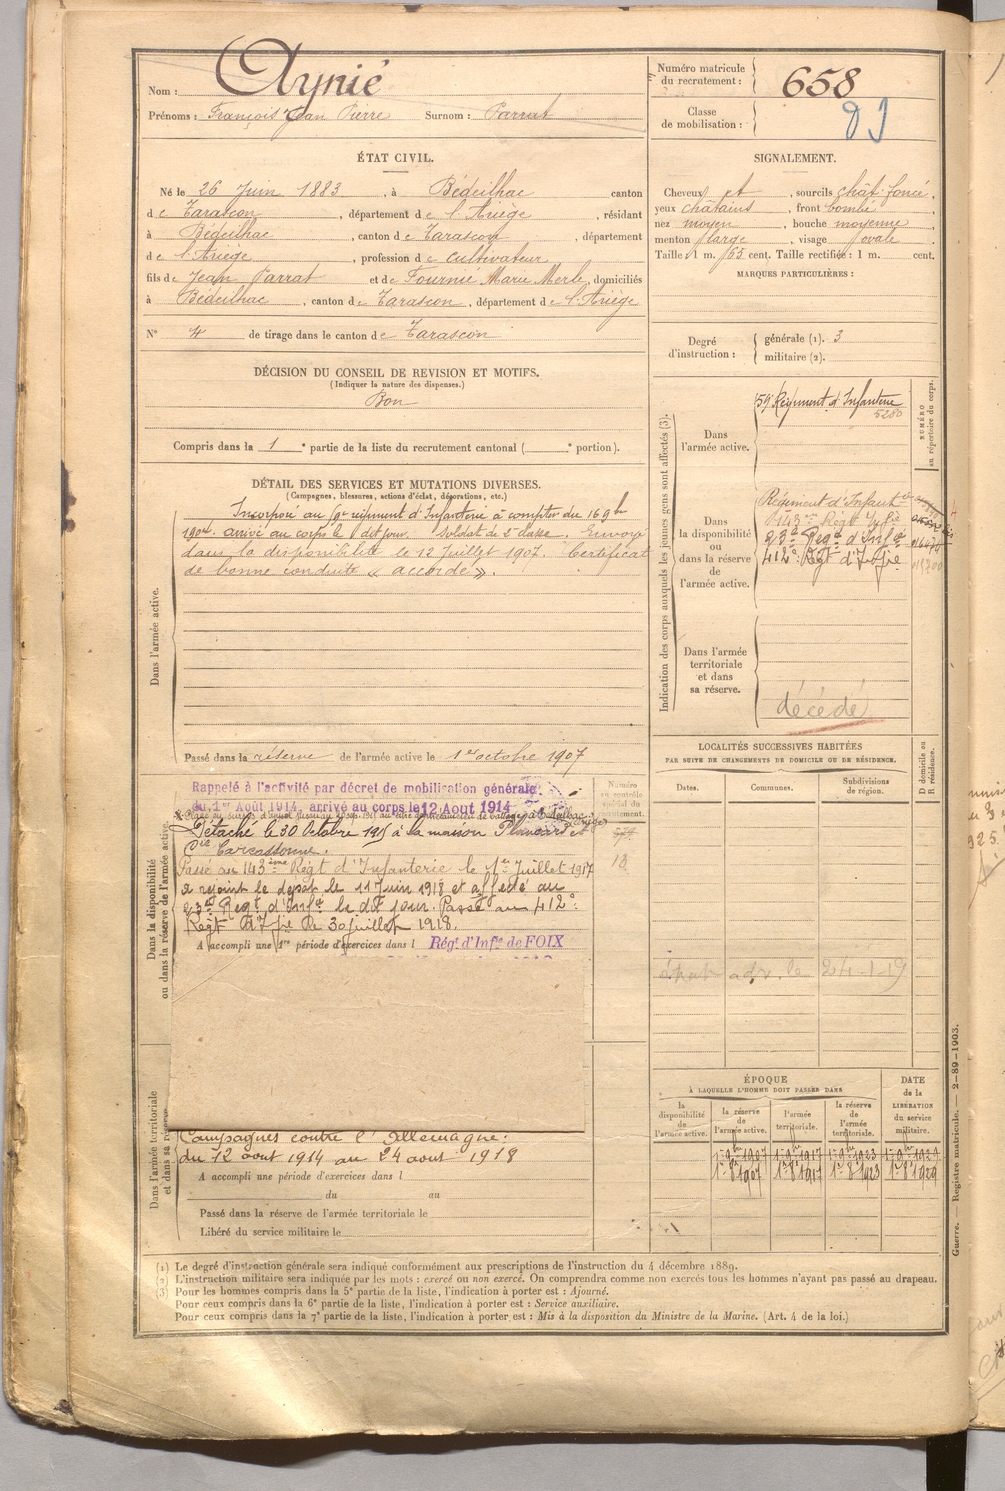 Nom : Aynié
Prénoms : François Jean Pierre Surnom : Parrat
Numéro matricule du recrutement : 658
Classe de mobilisation :
ÉTAT CIVIL.
Né le 26 Juin 1883, à Bédeilhac canton
de Tarascon, département de l'Ariège, résidant
à Bédeilhac, canton de Tarascon, département
de l'Ariège, profession de cultivateur
fils de Jean Parrat et de Fournié Marie Merle, domiciliés
à Bédeilhac, canton de Tarascon, département de l'Ariège
N° 4 de tirage dans le canton de Tarascon
DÉCISION DU CONSEIL DE REVISION ET MOTIFS.
(Indiquer la nature des dispenses.)
Bon
Compris dans la 1e partie de la liste du recrutement cantonal ( e portion).
DÉTAIL DES SERVICES ET MUTATIONS DIVERSES.
(Campagnes, blessures, actions d'éclat, décorations, etc.)
Dans l'armée active.
Incorporé au régiment d'Infanterie à compter du 16 9bre
1904. arrivé au corps le dit jour. Soldat de 2e classe. Envoyé
dans la disponibilité le 12 Juillet 1907. Certificat
de bonne conduite « accordé ».
Passé dans la réserve de l'armée active le 1er octobre 1907
Dans la disponibilité ou dans la réserve de l'armée active.
Rappelé à l'activité par décret de mobilisation générale
du 1er Août 1914, arrivé au corps le 12 Aout 1914
Détaché le 30 Octobre 191 à la maison et
Cie Carcassonne.
Passé au 143ème Régt d'Infanterie le 1er Juillet 1917
a rejoint le dépôt le 11 Juin 1918 et affecté au
Regt d'Infie le dit jour. Passé au 412e
Régt d'Ifie le 30 juillet 1918.
A accompli une 1re période d'exercices dans l Régt d'Infie de FOIX
Dans l'armée territoriale et dans sa réserve
Campagnes contre l'Allemagne :
du 12 aout 1914 au 24 aout 1918
A accompli une période d'exercices dans l
du au
Passé dans la réserve de l'armée territoriale le
Libéré du service militaire le
SIGNALEMENT.
Cheveux et, sourcils chât. foncé,
yeux châtains, front bombé,
nez moyen, bouche moyenne
menton large, visage ovale
Taille : 1 m. 65 cent. Taille rectifiée : 1 m. cent.
MARQUES PARTICULIÈRES :
Degré d'instruction : générale (1). 3
militaire (2).
Indication des corps auxquels les jeunes gens sont affectés (3).
NUMÉRO au répertoire du corps.
Dans l'armée active.
59e Régiment d'Infanterie
5280
Dans la disponibilité ou dans la réserve de l'armée active.
Régiment d'Infant
143me Régt Infie
Regt d'Infie
412e Régt d'Infie
Dans l'armée territoriale et dans sa réserve.
décédé
LOCALITÉS SUCCESSIVES HABITÉES
PAR SUITE DE CHANGEMENTS DE DOMICILE OU DE RÉSIDENCE.
D domicile ou R résidence.
Dates. Communes. Subdivisions de région.
adr. le 24-1-19
ÉPOQUE
À LAQUELLE L'HOMME DOIT PASSER DANS
DATE de la LIBÉRATION du service militaire.
la disponibilité de l'armée active.
la réserve de l'armée active.
l'armée territoriale.
la réserve de l'armée territoriale.
Guerre. — Registre matricule. — 2-89-1903.
(1) Le degré d'instruction générale sera indiqué conformément aux prescriptions de l'instruction du 4 décembre 1889.
(2) L'instruction militaire sera indiquée par les mots : exercé ou non exercé. On comprendra comme non exercés tous les hommes n'ayant pas passé au drapeau.
(3) Pour les hommes compris dans la 5e partie de la liste, l'indication à porter est : Ajourné.
Pour ceux compris dans la 6e partie de la liste, l'indication à porter est : Service auxiliaire.
Pour ceux compris dans la 7e partie de la liste, l'indication à porter est : Mis à la disposition du Ministre de la Marine. (Art. 4 de la loi.)